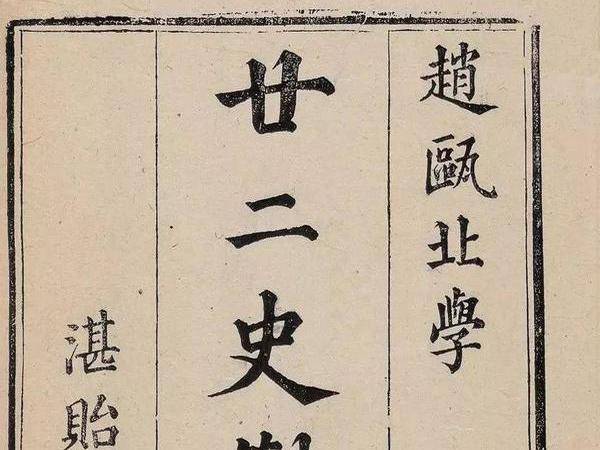 趙甌北學
廿二史
湛貽